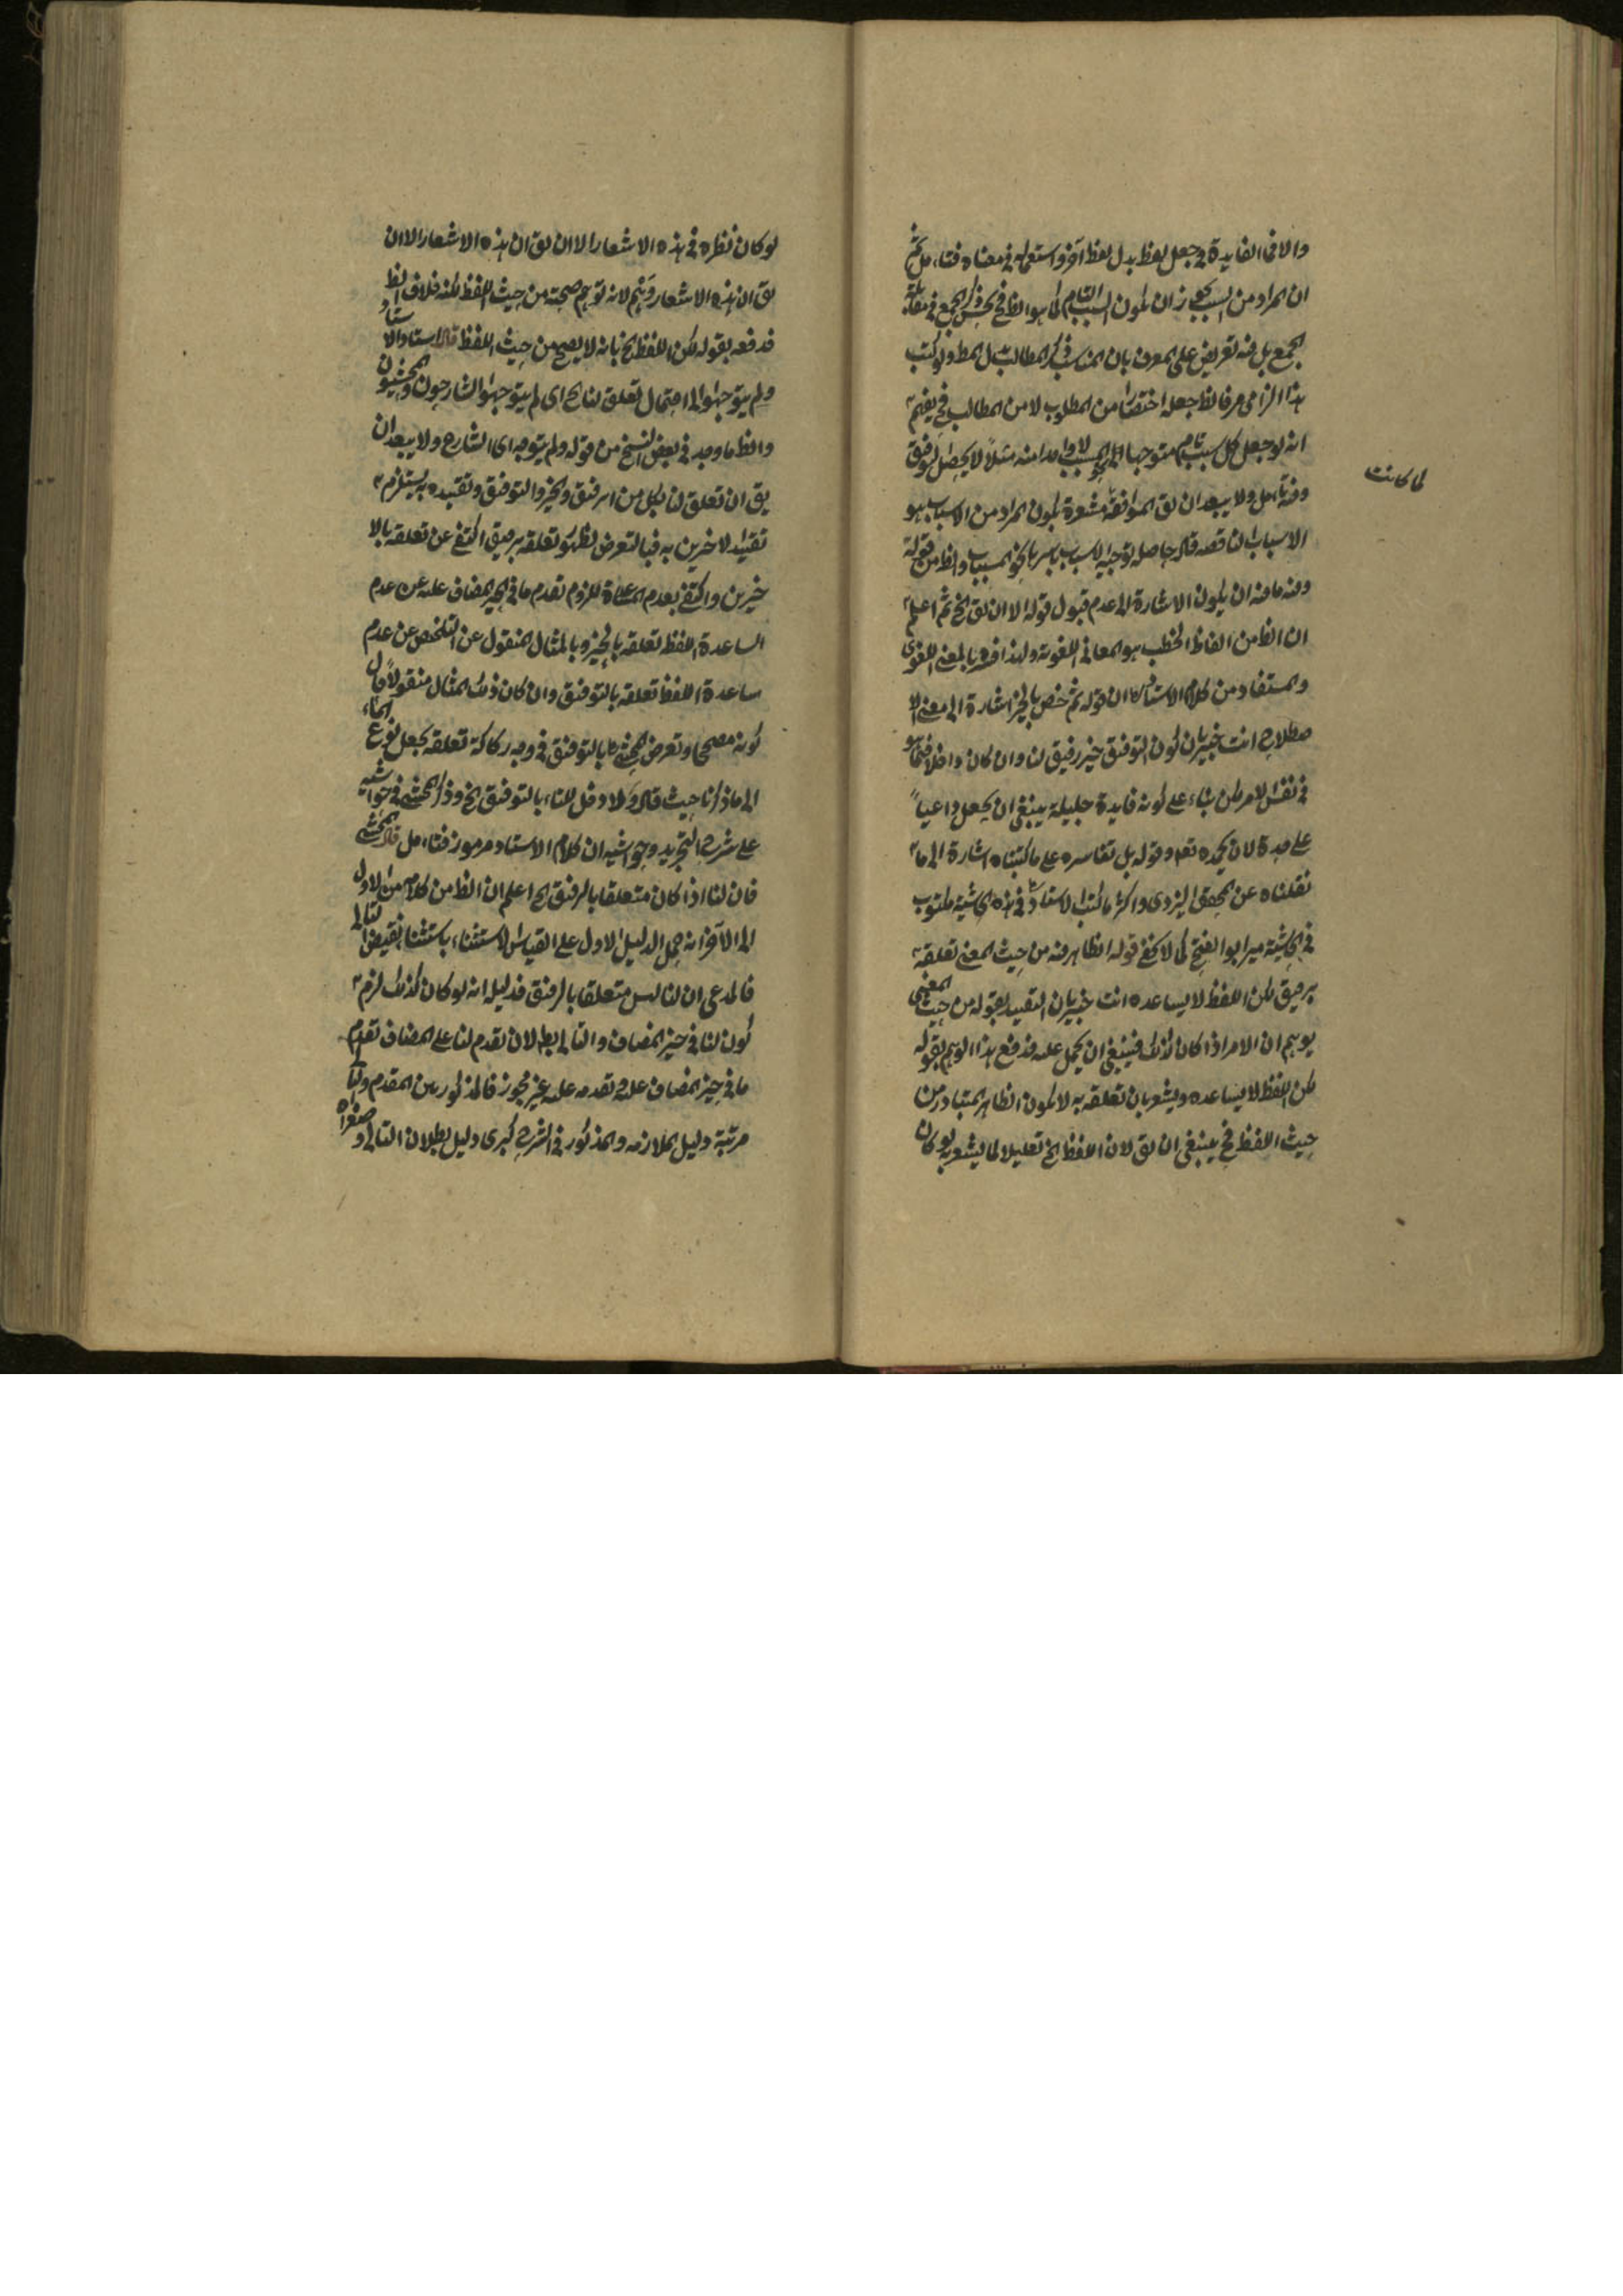 والا فما الفايدة في جعل لفظ بدل لفظ آخر واستعماله في معناه فتامل ثم
ان المراد من السبب يجوز ان يكون السبب التام كما هو الظ فح يحسن ذكر الجمع في مقابلة
الجمع بل فيه تعريض على المعرف بان المناسب ذكر المطالب بدل المطلوب كتب
هذا الزامي صرف
انه لو جعل كل سبب تام متوجها الى المسبب لا واحدا منه مثلا لا يحصل توفيق
وفيه تامل ولا يبعد ان يق الموافقة مشعرة بكون المراد من الاسباب هو
الاسباب الناقصة قال حاصله توجيه الاسباب باسرها نحو المسببات والظ من قوله
وفيه ما فيه ان يكون الاشارة الى عدم قبول قوله الا ان يق الخ ثم اعلم
ان الظ من الفاظ الخطب هو المعاني اللغوية ولهذا فسره بالمعنى اللغوي
والمستفاد من كلام الاستاد ان قوله ثم خص بالخير اشارة الى معنى الا
صطلاحي انت خبير بان كون التوفيق خير رفيق لنا وان كان داخلا فيما هو
في نفس الامر لكن بناء على كونه فايدة جليلة ينبغي ان يجعل داعيا
على حدة لان يحمده تعه وقوله بل تفاسره على ما كتبناه اشارة الى ما
نقلناه عن المحقق اليزدي واكثر ما كتب الاستاد في هذه الحاشية مكتوب
في الحاشية مير ابو الفتح كما لا يخفى قوله الظاهر فيه من حيث المعنى تعلقه
برفيق لكن اللفظ لا يساعده انت خبير بان التقييد بقوله من حيث المعنى
يوهم ان الامر اذا كان كذلك فينبغي ان يحمل عليه فدفع هذا الوهم بقوله
لكن اللفظ لا يساعده ويشعر بان تعلقه به لا يكون الظاهر المتبادر من
حيث اللفظ فح ينبغي ان يق لان اللفظ الخ تعليلا لما يشعر به لو كان
لما كانت
لو كان نظره في هذه الاشعار الا ان يق ان هذه الاشعار الا ان
يق ان هذه الاشعار وهم لانه توهم صحته من حيث اللفظ لكنه خلاف الظ
فدفعه بقوله لكن اللفظ الخ بانه لا يصح من حيث اللفظ قال الاستاد والاستاد
ولم يتوجهوا الى احتمال تعلق لنا الخ اى لم يتوجهوا الشارحون والمحشيون
والظ ما وجد في بعض النسخ من قوله ولم يتوجه اى الشارح ولا يبعد ان
يق ان تعلق لنا بكل من الرفيق والخير والتوفيق وتقييده به يستلزم
تقييد الاخرين به فبالتعرض لظهور تعلقه برفيق اكتفى عن تعلقه بالا
خيرين واكتفى بعدم المساعدة للزوم تقدم ما في الحيز المضاف عليه عن عدم
الساعدة اللفظ تعلقه بالخير وبالمثال المنقول عن التلخص عن عدم
ساعدة اللفظ تعلقه بالتوفيق وان كان ذلك المثال منقولا فان
كونه مصححا وتعرض المحشى بالتوفيق في وجه ركاكة تعلقه بجعل نوع ايماء
الى ما ذكرنا حيث قال ولا دخل للنا بالتوفيق الخ وذكر المحشى في حواشيه
على شرح التجريد وحواشيه ان كلام الاستاد مرموز فتامل قال المحشى
فان لنا اذا كان متعلقا بالرفيق الخ اعلم ان الظ من كلامه من الاول
الى الآخر انه حمل الدليل الاول على القياس الاستثناء باستثنا نقيض التالى
فالمدعى ان لنا ليس متعلقا بالرفيق فدليله انه لو كان كذلك لزم
كون لنا في حيز المضاف والتالى بط لان تقدم لنا على المضاف تقدم
ما في حيز المضاف عليه وتقدمه عليه غير مجوز فالمذكور بين المقدم والتالى
مرتبة دليل الملازمه والمذكور في الشرح كبرى دليل بطلان التالى وصغراه